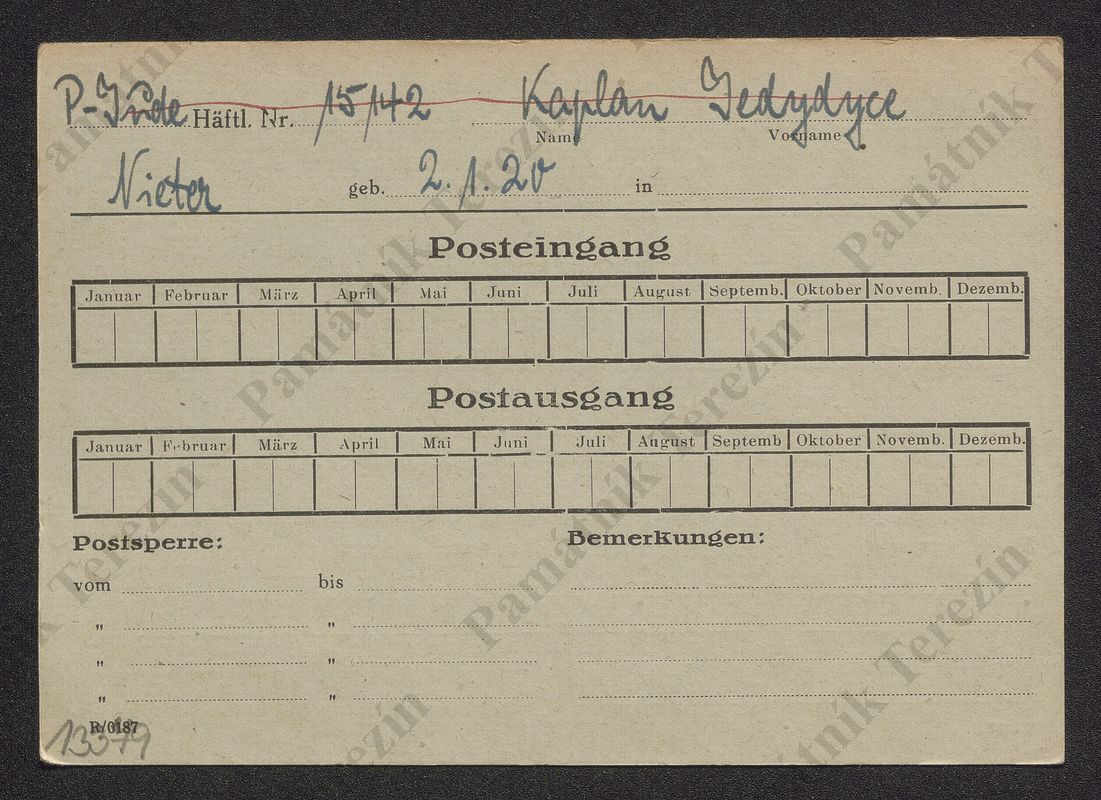 P-Jude Häftl. Nr. 15142 Kaplan Jedydyce
Name Vorname
Nieter geb. 2.1.20 in
Posteingang
Januar Februar März April Mai Juni Juli August Septemb. Oktober Novemb. Dezemb.
Postausgang
Januar Februar März April Mai Juni Juli August Septemb Oktober Novemb. Dezemb.
Postsperre: Bemerkungen:
vom bis
" "
" "
" "
R/0187
13379
Památník Terezín